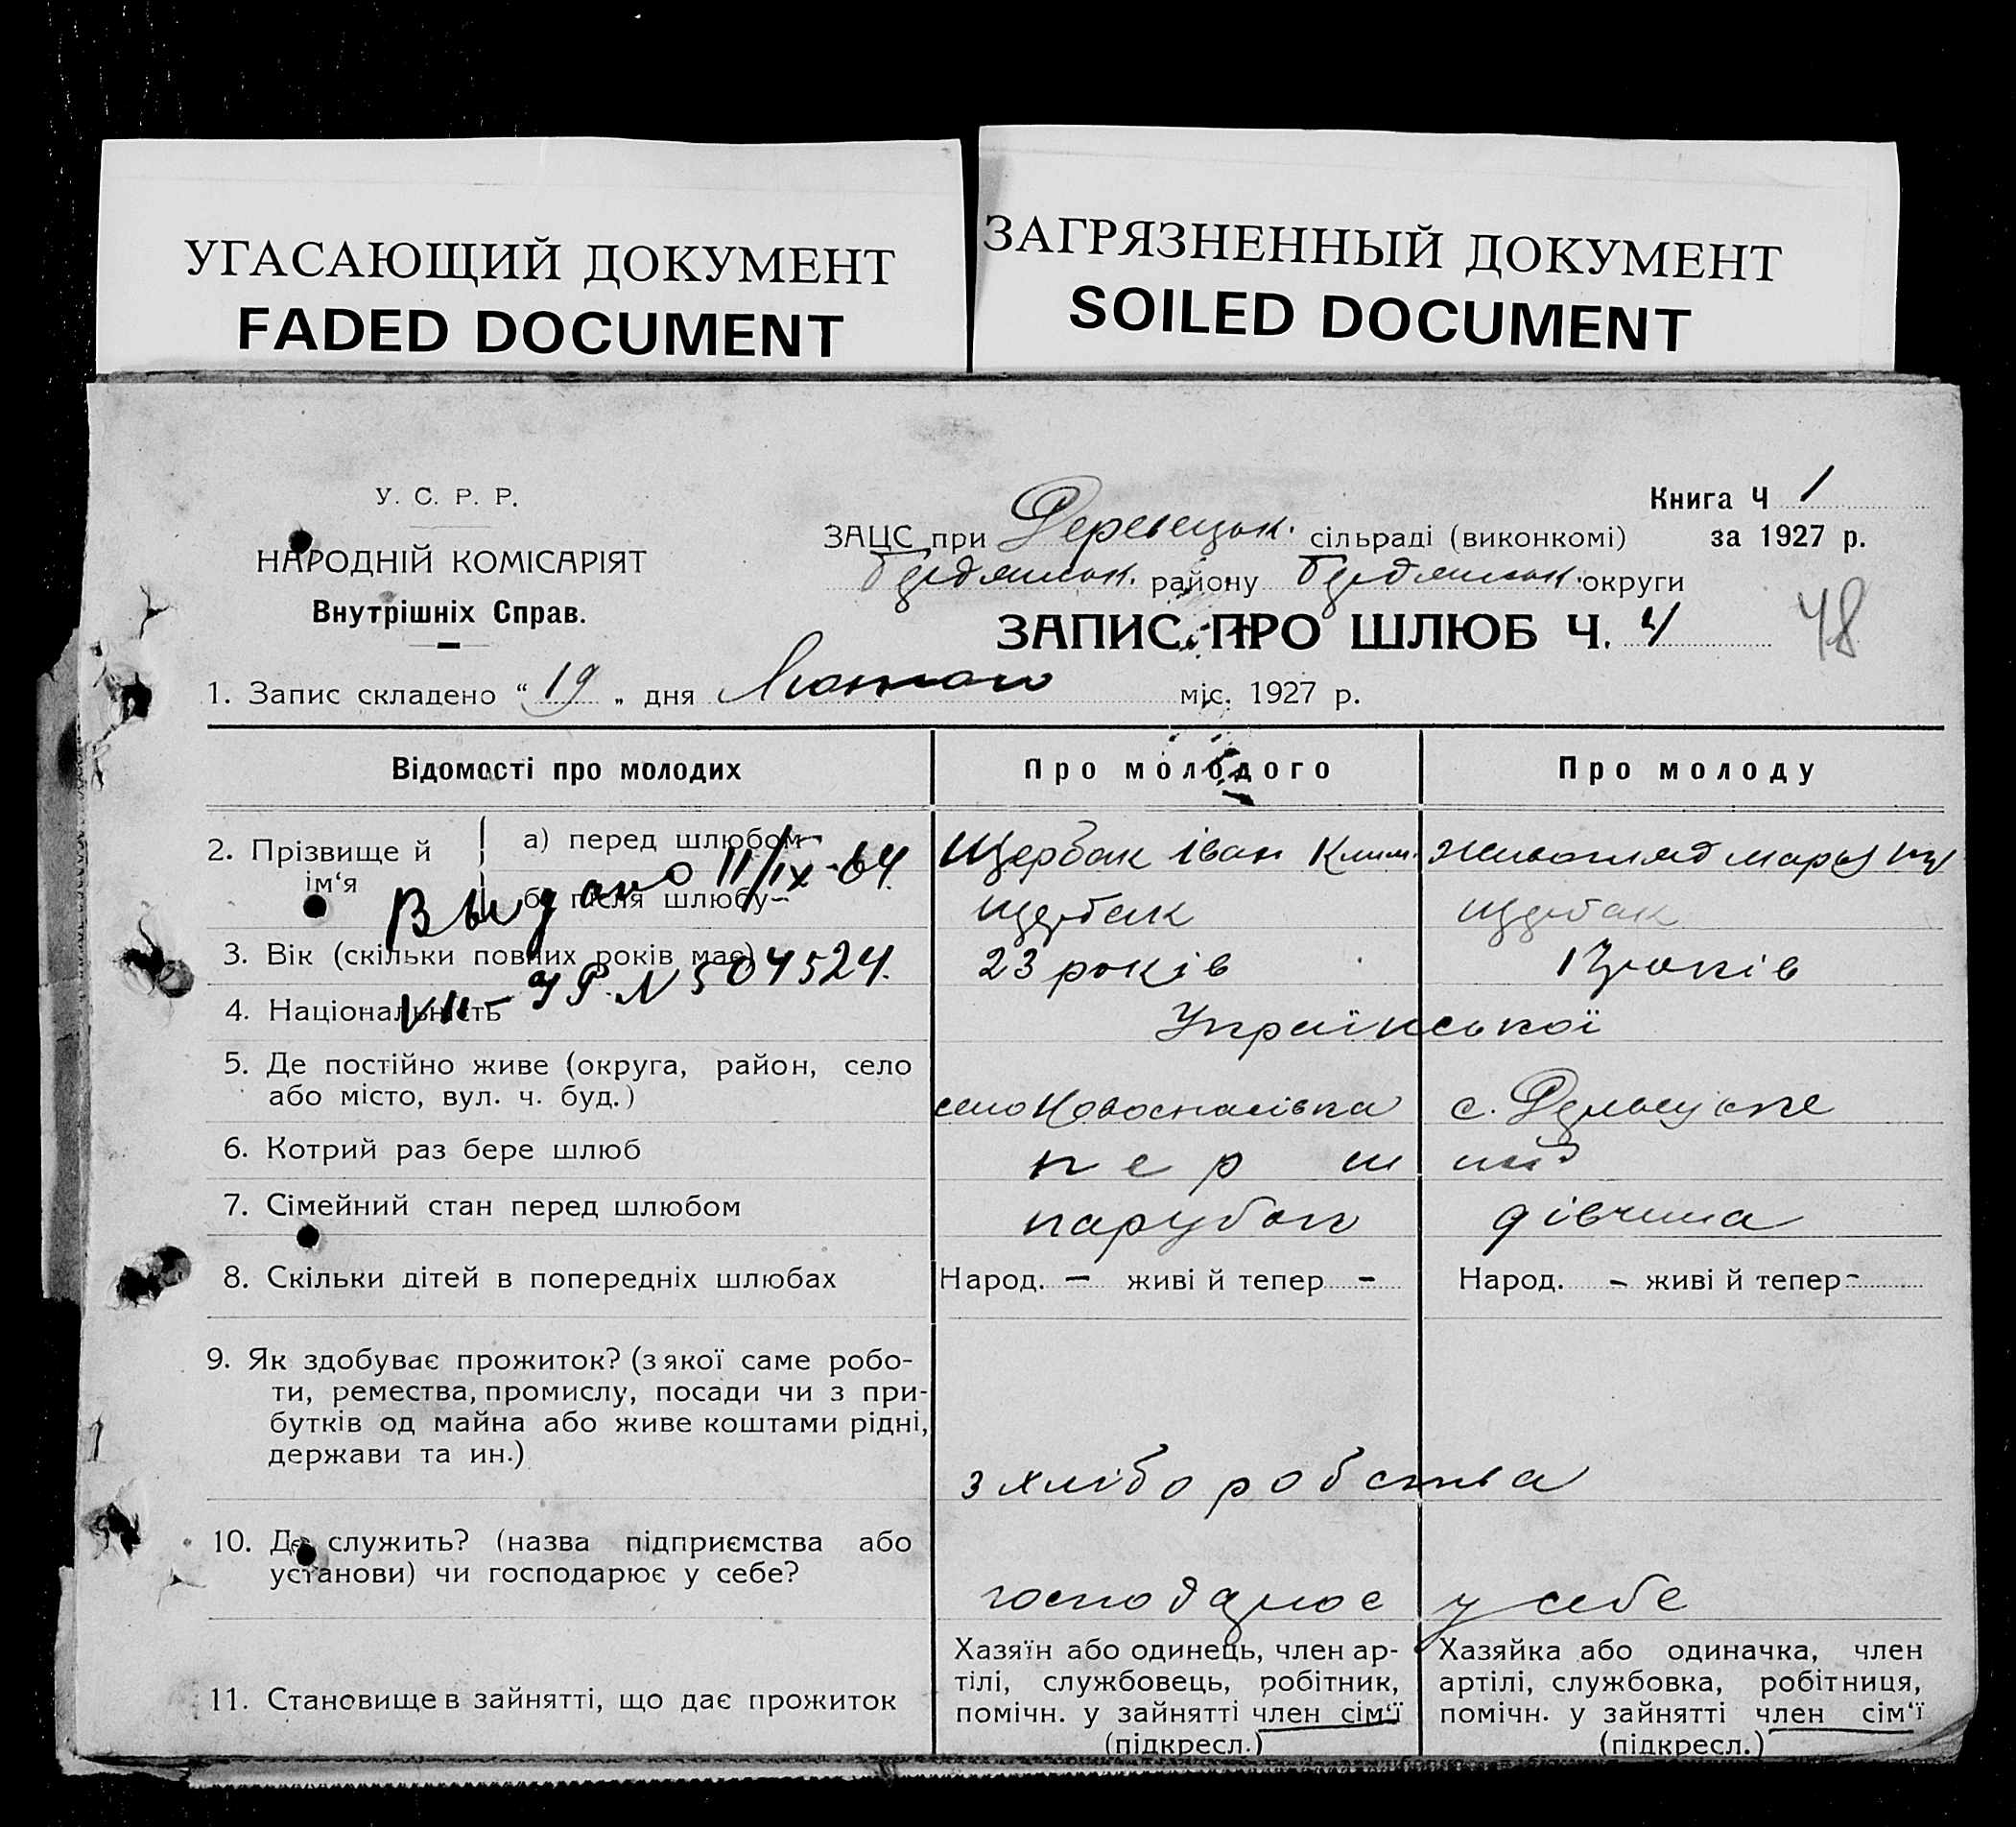 УГАСАЮЩИЙ ДОКУМЕНТ
FADED DOCUMENT
ЗАГРЯЗНЕННЫЙ ДОКУМЕНТ
SOILED DOCUMENT
У. С. Р. Р.
НАРОДНІЙ КОМІСАРІЯТ
Внутрішніх Справ.
Книга Ч 1
за 1927 р.
ЗАЦС при Деревецьк. сільраді (виконкомі)
Бердянськ. району Бердянськ. округи
ЗАПИС ПРО ШЛЮБ Ч. 4
48
1. Запис складено “ 19 „ дня Лютого міс. 1927 р.
Відомості про молодих
Про молодого
Про молоду
2. Прізвище й ім‘я
а) перед шлюбом
Щербак Іван Клим.
б) після шлюбу
Щербак
Щербак
Выдано 11/IX-64.
3. Вік (скільки повних років має)
23 років
17 років
УР. N 504524.
4. Національність
Української
5. Де постійно живе (округа, район, село
або місто, вул. ч. буд.)
село Новоспасівка
6. Котрий раз бере шлюб
перш
7. Сімейний стан перед шлюбом
парубок
дівчина
8. Скільки дітей в попередніх шлюбах
Народ. - живі й тепер -
Народ. - живі й тепер -
9. Як здобуває прожиток? (з якої саме робо-
ти, ремества, промислу, посади чи з при-
бутків од майна або живе коштами рідні,
держави та ин.)
з хліборобства
10. Де служить? (назва підприємства або
установи) чи господарює у себе?
господарює у себе
11. Становище в зайнятті, що дає прожиток
Хазяїн або одинець, член ар-
тілі, службовець, робітник,
помічн. у зайнятті член сім‘ї
(підкресл.)
Хазяйка або одиначка, член
артілі, службовка, робітниця,
помічн. у зайнятті член сім‘ї
(підкресл.)